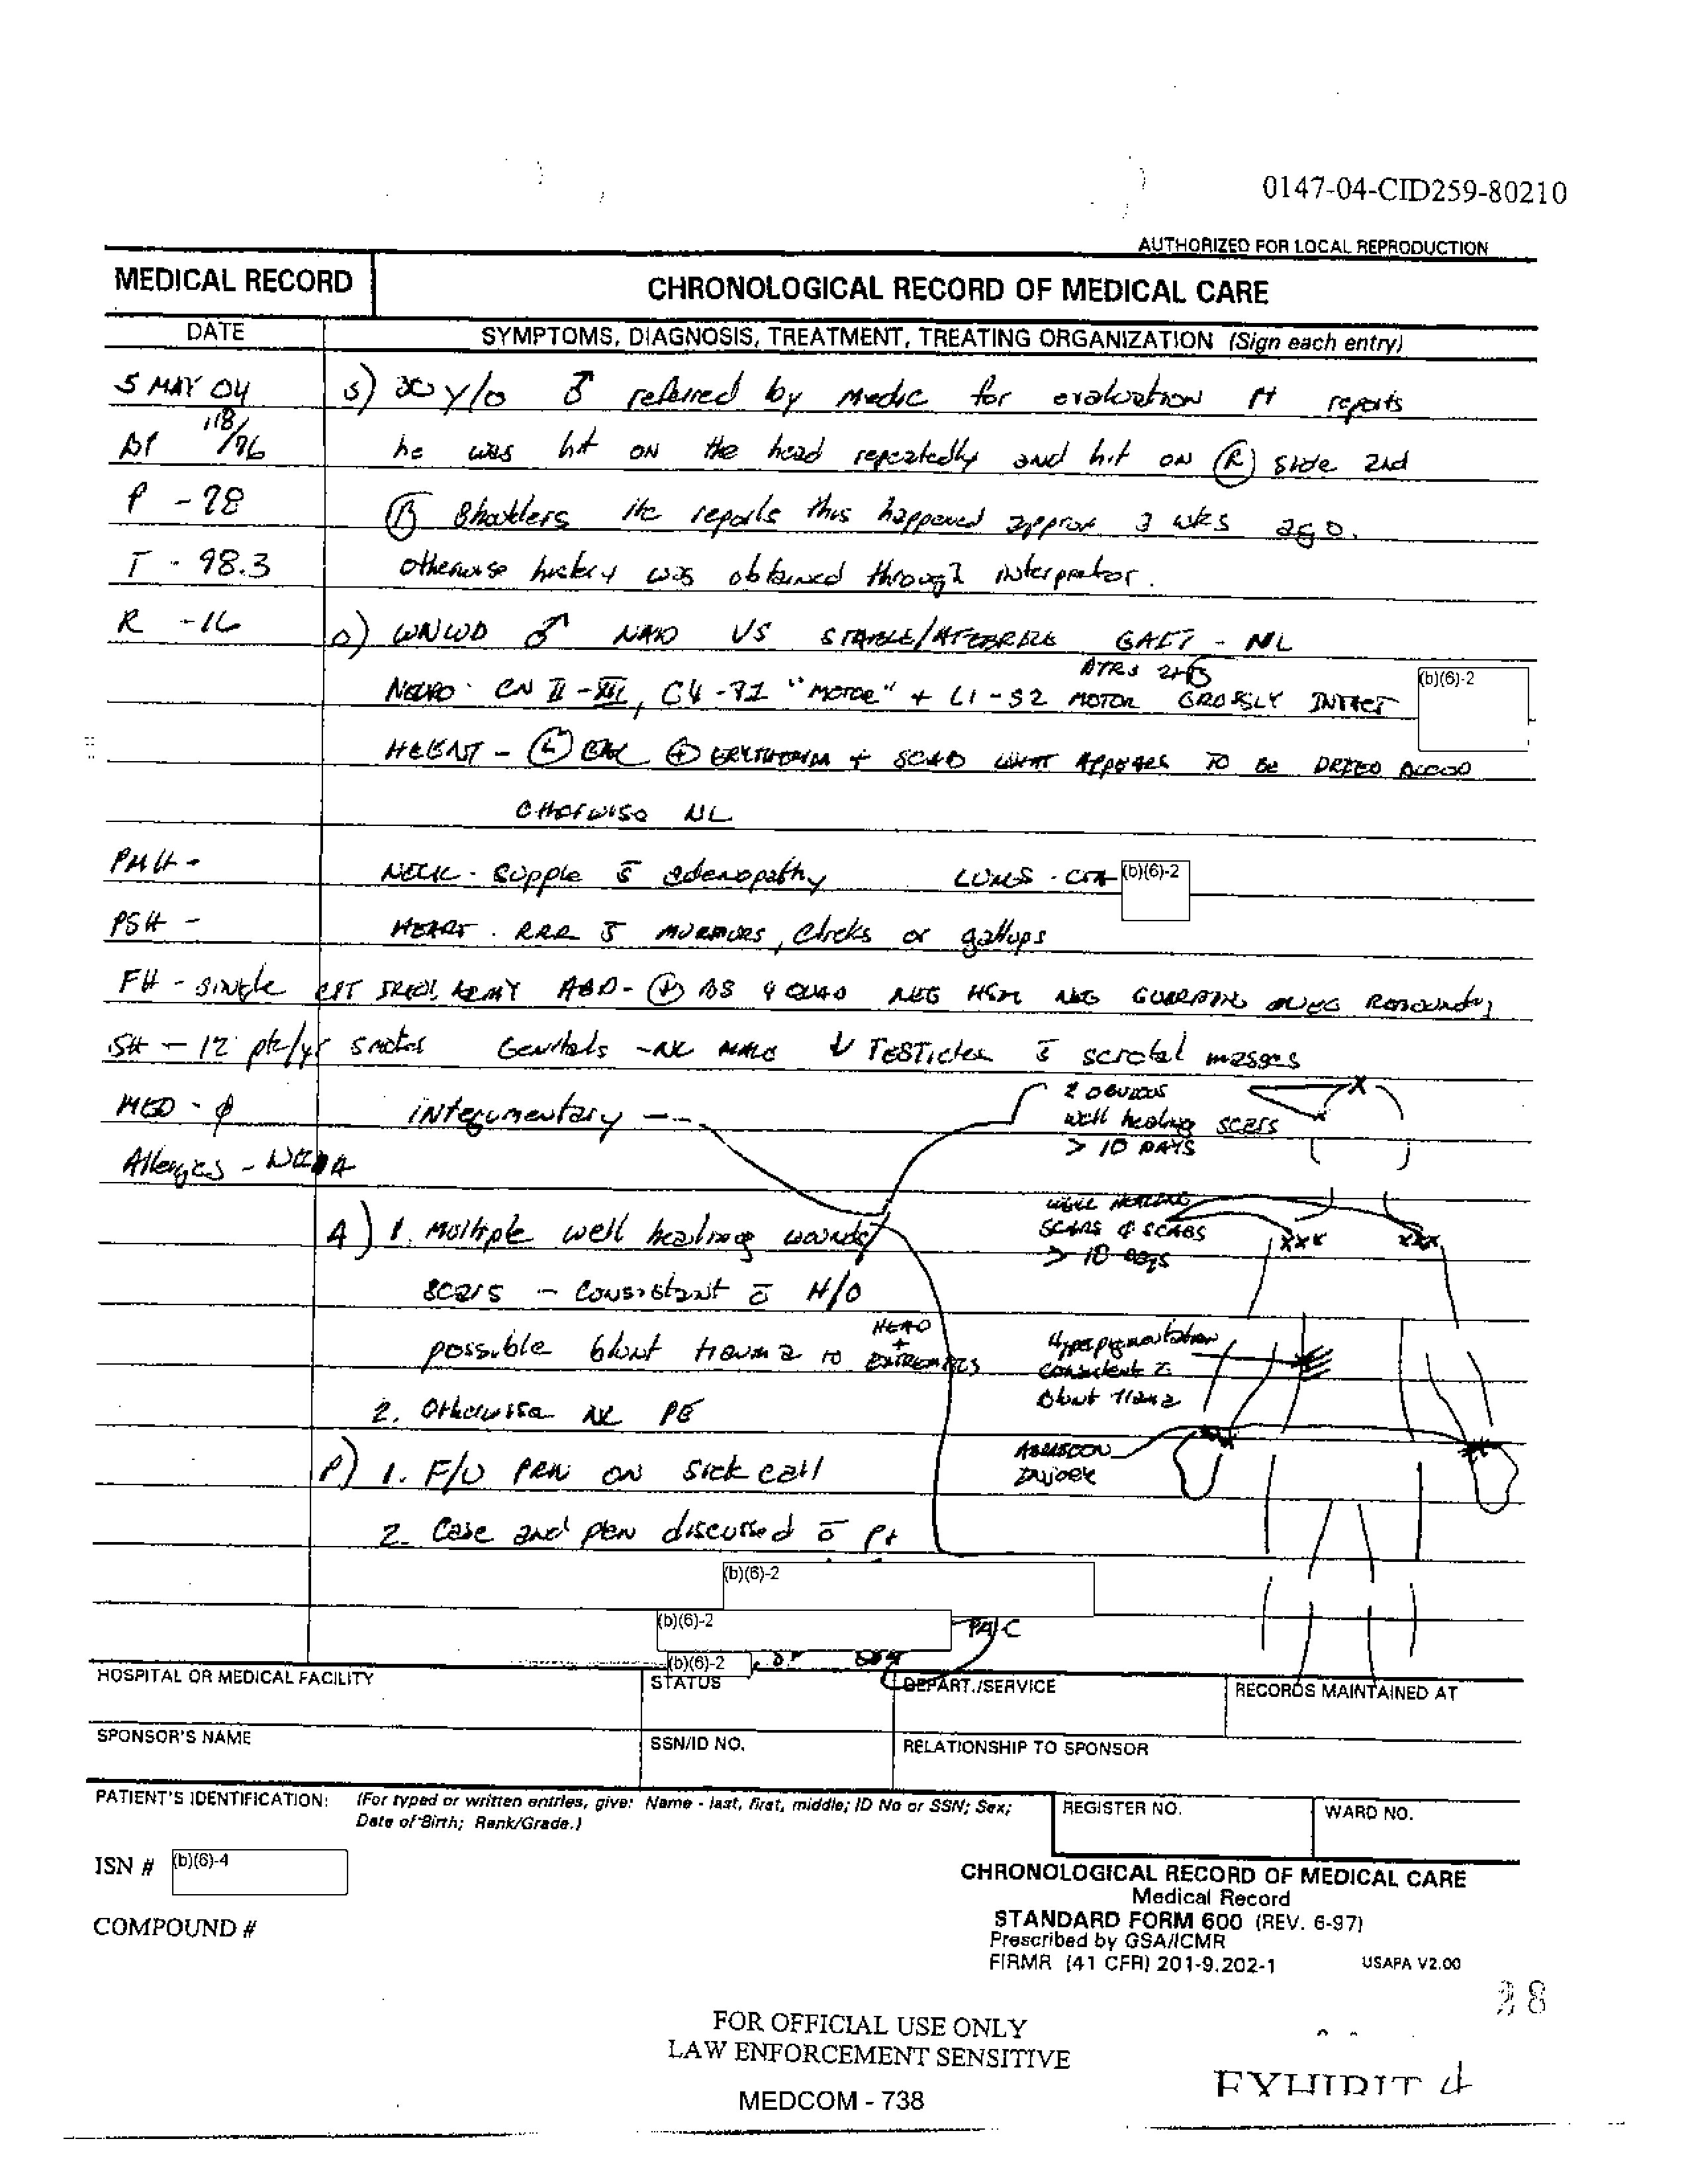 0147-04-CID259-80210
AUTHORIZED FOR LOCAL REPRODUCTION
MEDICAL RECORD
CHRONOLOGICAL RECORD OF MEDICAL CARE
DATE
SYMPTOMS, DIAGNOSIS, TREATMENT, TREATING ORGANIZATION (Sign each entry)
5 MAY 04 S) y/o ♂ referred by Medic for evaluation Pt reports
BP 118/76 he was hit on the head repeatedly and hit on (R) side and
P - 78 (B) Shoulders He reports this happened approx 3 wks ago.
T - 98.3 otherwise history was obtained through interpretor.
R - 16 O) WNWD ♂ NAD VS STABLE/AFEBRILE GAIT - NL
DTRs 2+(B)
NEURO - CN II-XII, C4-T1 "MOTOR" + L1-S2 MOTOR GROSSLY INTACT
(b)(6)-2
HEENT - (L) EAC (+) ERYTHEMA + SCAB WHAT APPEARS TO BE DRIED BLOOD
Otherwise NL
PMH - NECK - Supple s̄ adenopathy LUNGS - CTA (b)(6)-2
PSH - HEART - RRR s̄ MURMURS, clicks or gallops
FH - Single CPT IRAQI ARMY ABD - (+) BS 4 QUAD NEG HSM NEG GUARDING NEG Rebounding
SH - 12 pk/yr smoker Genitals - NL MALE ↓ TESTicles s̄ scrotal masses
MED - ϕ integumentary -
2 OBVIOUS
well healing scars
> 10 DAYS
Allergies - NKDA
WELL HEALING
SCARS & SCABS
> 10 days
A) 1. Multiple well healing wounds/
scars - consistant c̄ H/O
possible blunt trauma to HEAD + EXTREMITIES
Hyperpigmentation
consistent c̄
blunt trauma
2. Otherwise NL PE
ABRASION
INJURY
P) 1. F/U PRN on sick call
2. Case and plan discussed c̄ Pt
(b)(6)-2
(b)(6)-2 PA-C
(b)(6)-2
HOSPITAL OR MEDICAL FACILITY
STATUS
DEPART./SERVICE
RECORDS MAINTAINED AT
SPONSOR'S NAME
SSN/ID NO.
RELATIONSHIP TO SPONSOR
PATIENT'S IDENTIFICATION: (For typed or written entries, give: Name - last, first, middle; ID No or SSN; Sex;
Date of Birth; Rank/Grade.)
REGISTER NO.
WARD NO.
ISN # (b)(6)-4
COMPOUND #
CHRONOLOGICAL RECORD OF MEDICAL CARE
Medical Record
STANDARD FORM 600 (REV. 6-97)
Prescribed by GSA/ICMR
FIRMR (41 CFR) 201-9.202-1
USAPA V2.00
FOR OFFICIAL USE ONLY
LAW ENFORCEMENT SENSITIVE
MEDCOM - 738
EXHIBIT 4